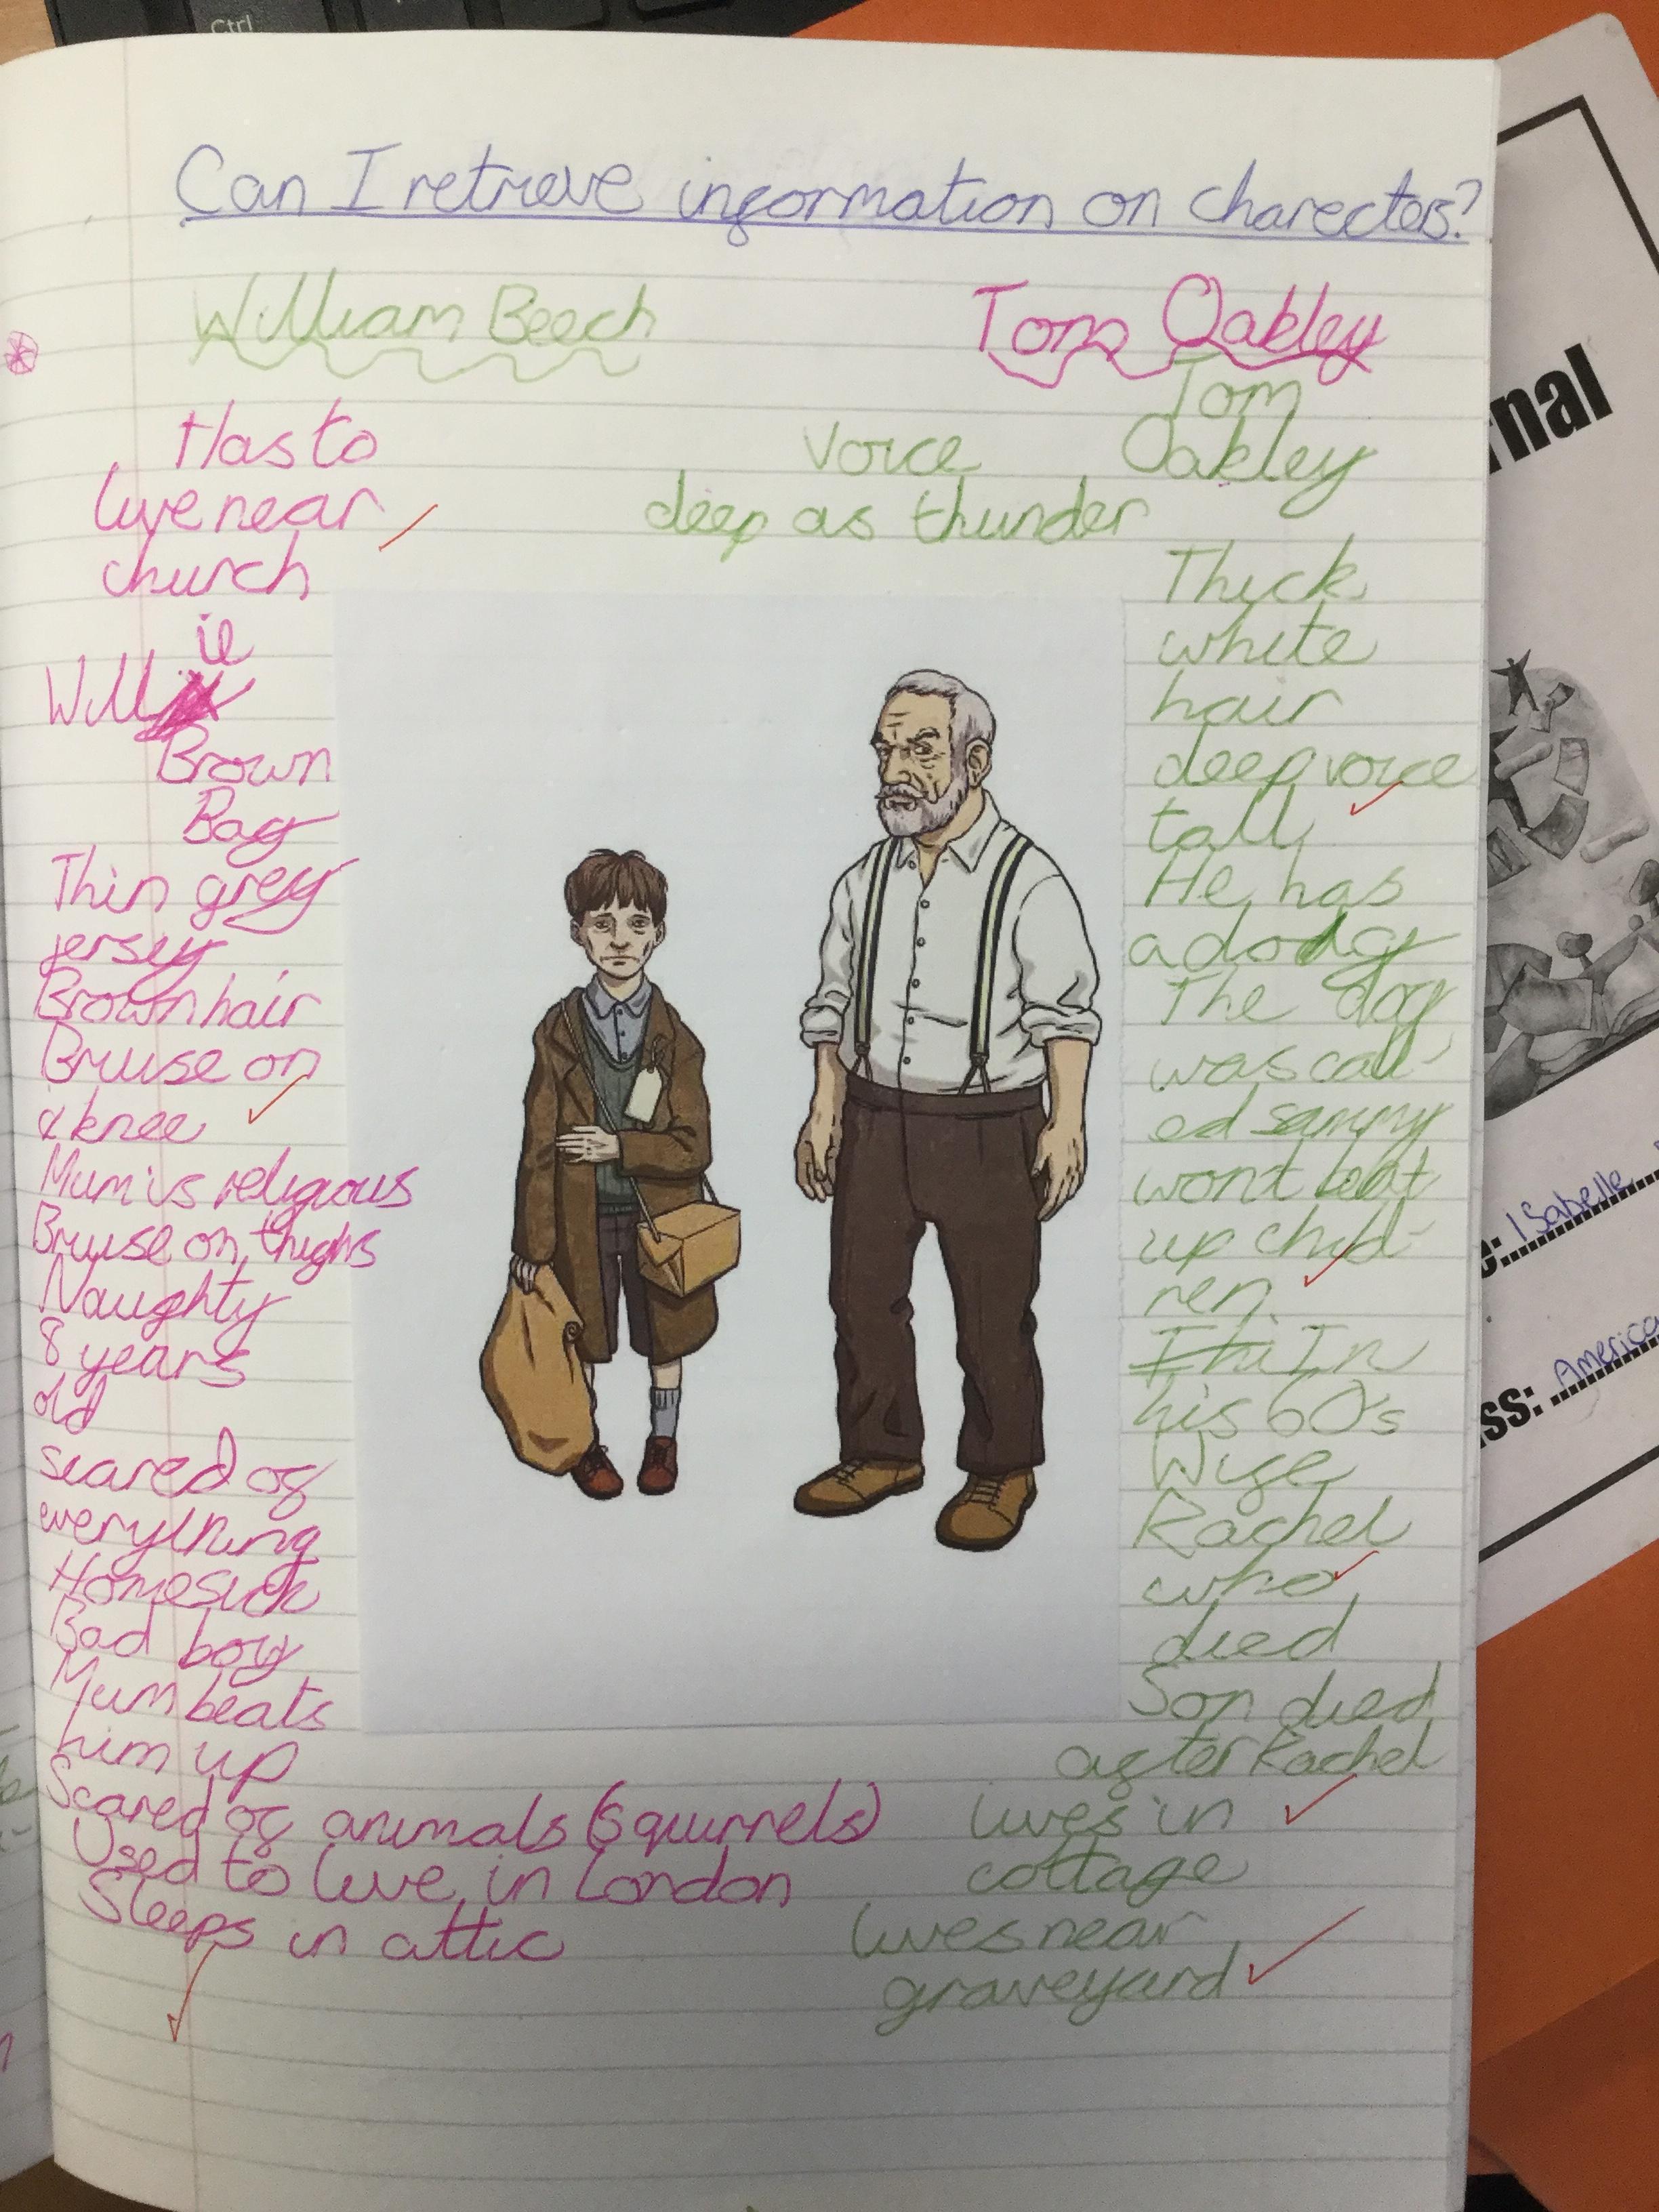 Ctrl
Can I retrieve information on charecters?
William Beech
Has to
live near
church
ie
Will
Brown
Bag
Thin grey
jersey
Brown hair
Bruise on
knee
Mum is religious
Bruise on thighs
Naughty
8 years
old
scared of
everything
Homesick
Bad boy
Mum beats
him up
Scared of animals (squirrels)
Used to live in London
Sleeps in attic
Tom Oakley
Tom
Oakley
Voice
deep as thunder
Thick
white
hair
deep voice
tall
He has
a dog
The dog
was call-
ed sammy
wont beat
up child-
ren.
In
his 60's
Wife
Rachel
who
died
Son died
after Rachel
lives in
cottage
lives near
graveyard
rnal
e: Isabelle
ss: America